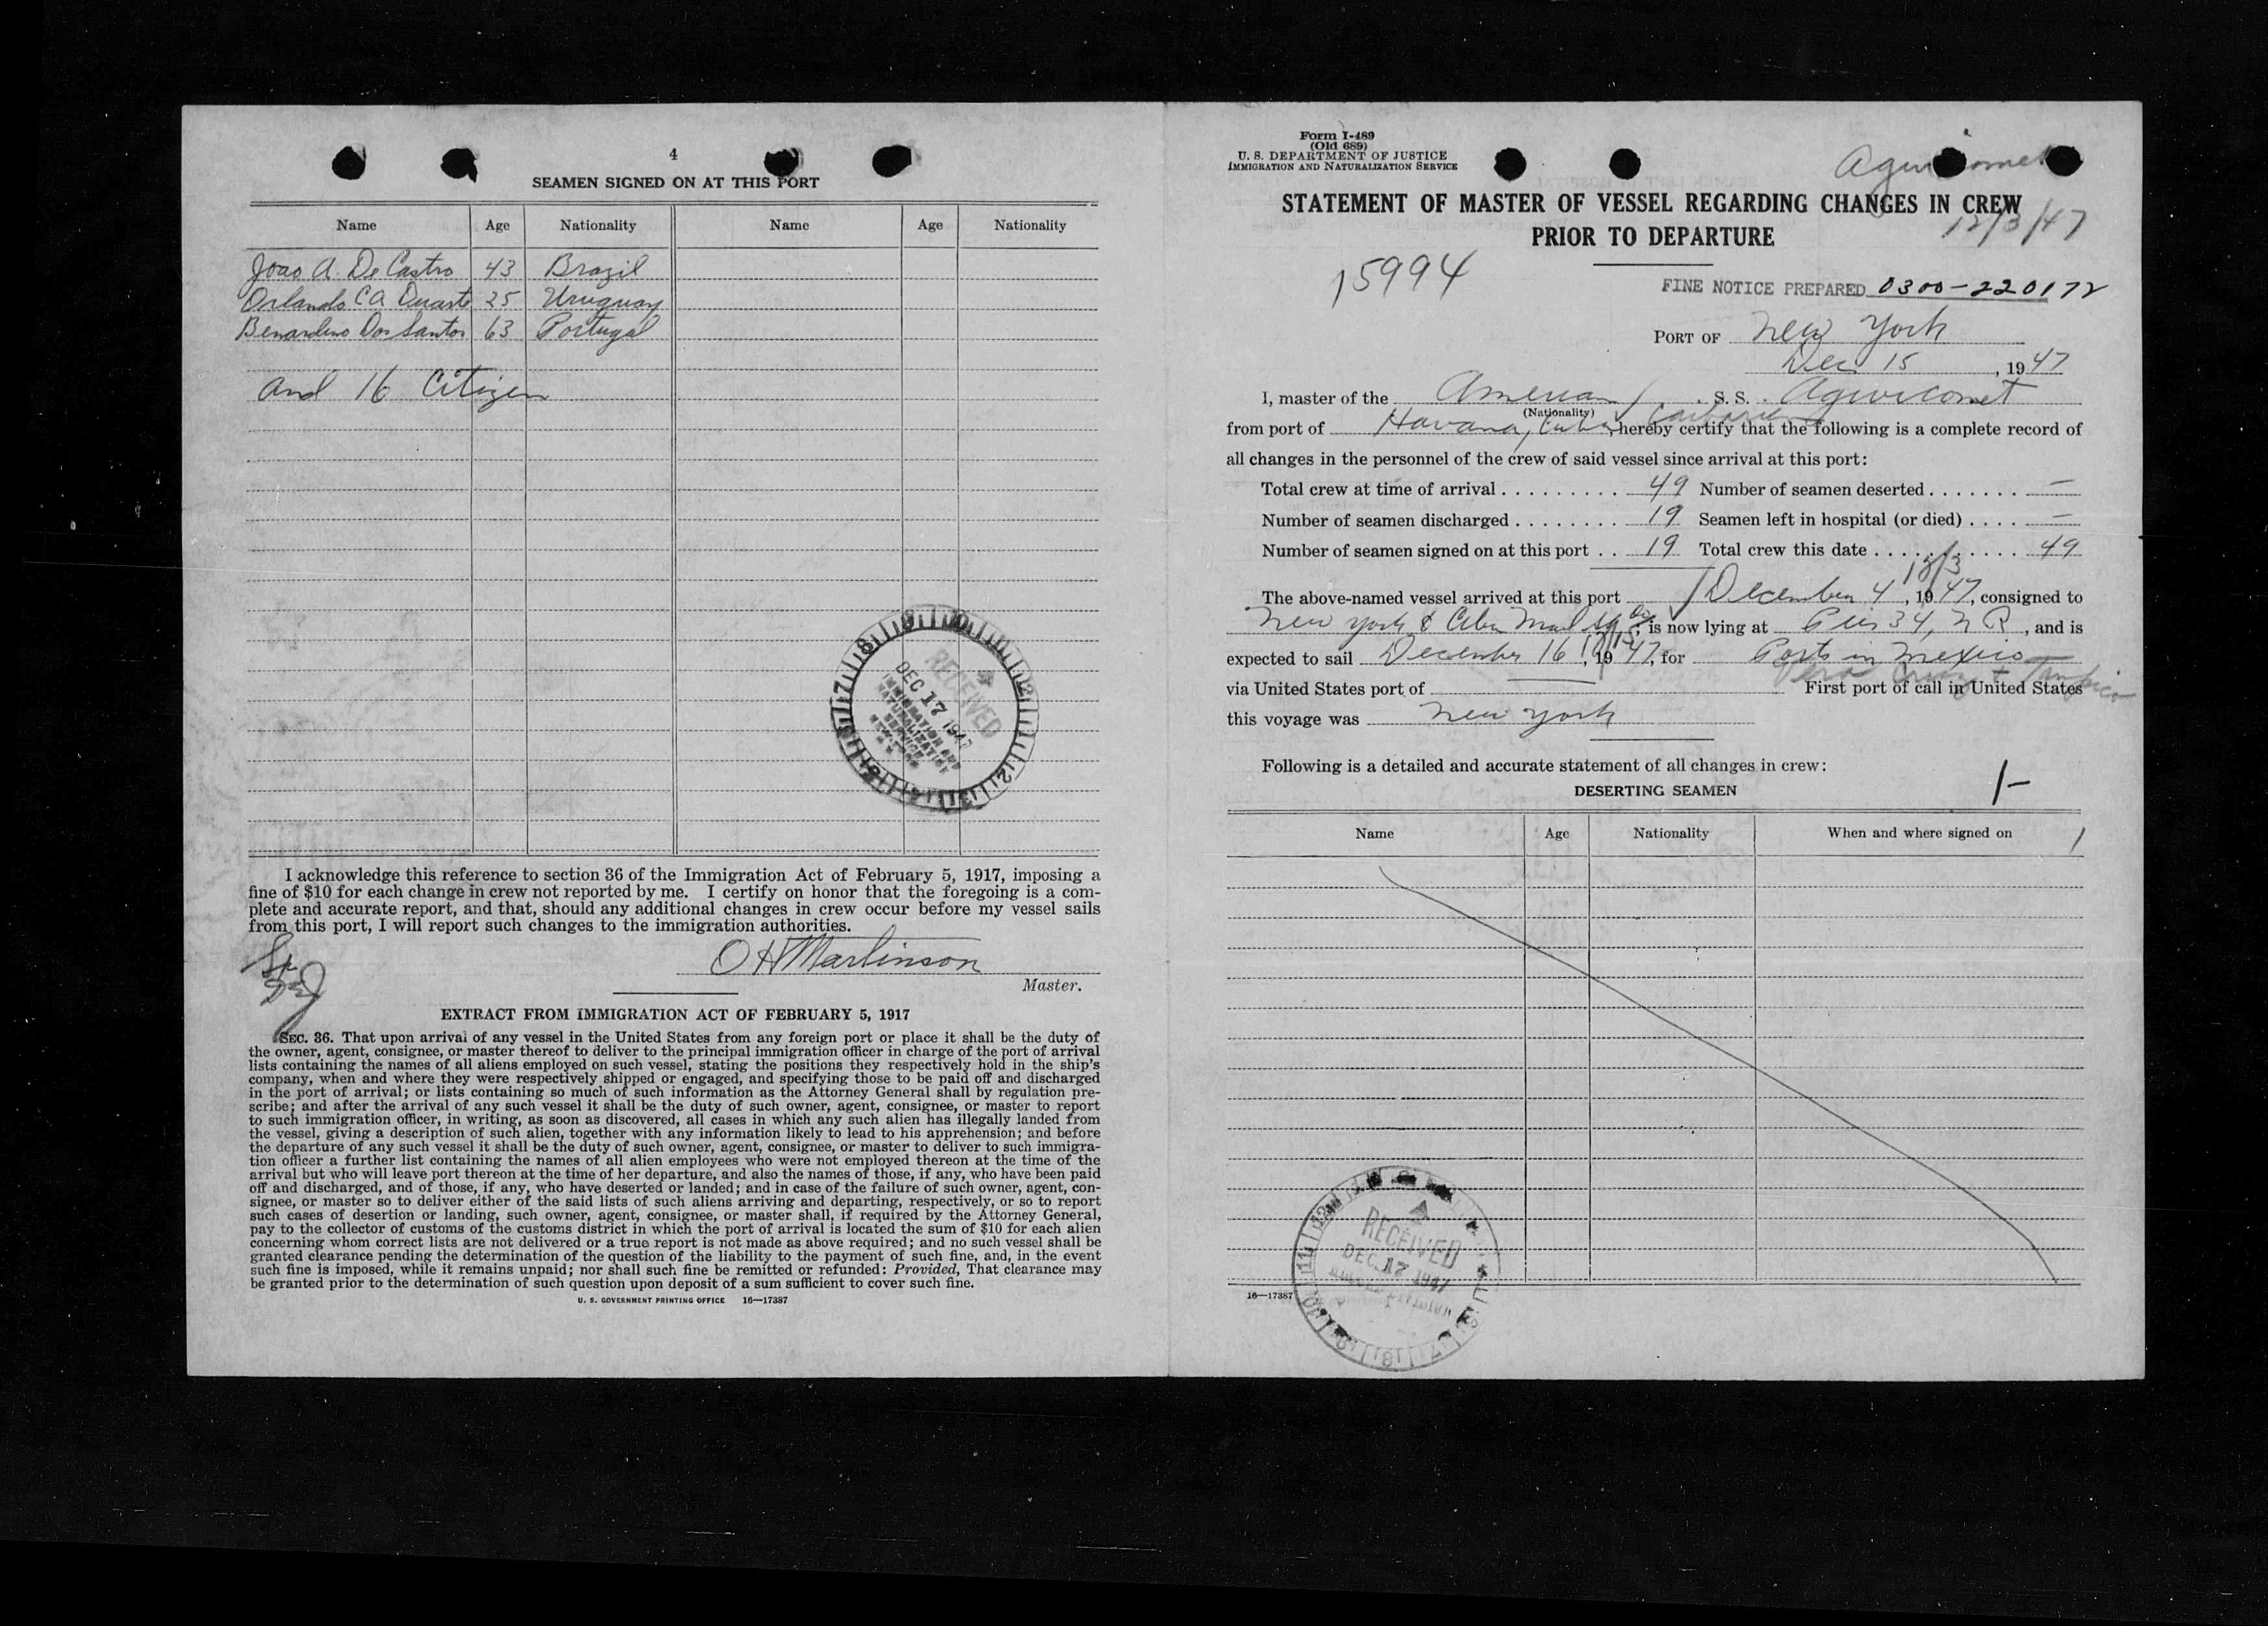 4
SEAMEN SIGNED ON AT THIS PORT
Name Age Nationality Name Age Nationality
Joao A. De Castro 43 Brazil
Orlando CA Duarte 25 Uruguay
Benardino Dos Santos 63 Portugal
and 16 Citizen
RECEIVED
DEC 17 1947
IMMIGRATION AND
NATURALIZATION
SERVICE
I acknowledge this reference to section 36 of the Immigration Act of February 5, 1917, imposing a
fine of $10 for each change in crew not reported by me. I certify on honor that the foregoing is a com-
plete and accurate report, and that, should any additional changes in crew occur before my vessel sails
from this port, I will report such changes to the immigration authorities.
O H Martinson
Master.
EXTRACT FROM IMMIGRATION ACT OF FEBRUARY 5, 1917
SEC. 36. That upon arrival of any vessel in the United States from any foreign port or place it shall be the duty of
the owner, agent, consignee, or master thereof to deliver to the principal immigration officer in charge of the port of arrival
lists containing the names of all aliens employed on such vessel, stating the positions they respectively hold in the ship's
company, when and where they were respectively shipped or engaged, and specifying those to be paid off and discharged
in the port of arrival; or lists containing so much of such information as the Attorney General shall by regulation pre-
scribe; and after the arrival of any such vessel it shall be the duty of such owner, agent, consignee, or master to report
to such immigration officer, in writing, as soon as discovered, all cases in which any such alien has illegally landed from
the vessel, giving a description of such alien, together with any information likely to lead to his apprehension; and before
the departure of any such vessel it shall be the duty of such owner, agent, consignee, or master to deliver to such immigra-
tion officer a further list containing the names of all alien employees who were not employed thereon at the time of the
arrival but who will leave port thereon at the time of her departure, and also the names of those, if any, who have been paid
off and discharged, and of those, if any, who have deserted or landed; and in case of the failure of such owner, agent, con-
signee, or master so to deliver either of the said lists of such aliens arriving and departing, respectively, or so to report
such cases of desertion or landing, such owner, agent, consignee, or master shall, if required by the Attorney General,
pay to the collector of customs of the customs district in which the port of arrival is located the sum of $10 for each alien
concerning whom correct lists are not delivered or a true report is not made as above required; and no such vessel shall be
granted clearance pending the determination of the question of the liability to the payment of such fine, and, in the event
such fine is imposed, while it remains unpaid; nor shall such fine be remitted or refunded: Provided, That clearance may
be granted prior to the determination of such question upon deposit of a sum sufficient to cover such fine.
U. S. GOVERNMENT PRINTING OFFICE 16—17387
Form I-489
(Old 689)
U. S. DEPARTMENT OF JUSTICE
IMMIGRATION AND NATURALIZATION SERVICE
STATEMENT OF MASTER OF VESSEL REGARDING CHANGES IN CREW
PRIOR TO DEPARTURE
12/3/47
15994
FINE NOTICE PREPARED 0300-220172
PORT OF New York
Dec. 15, 1947
I, master of the American S. S. Agwicomet
(Nationality)
from port of Havana, Cuba, hereby certify that the following is a complete record of
all changes in the personnel of the crew of said vessel since arrival at this port:
Total crew at time of arrival . . . . . . . . . 49 Number of seamen deserted . . . . . . . —
Number of seamen discharged . . . . . . . . 19 Seamen left in hospital (or died) . . . . —
Number of seamen signed on at this port . . 19 Total crew this date . . . . . . . . . . 49
12/3
The above-named vessel arrived at this port December 4, 1947, consigned to
New York & Cuba Mail SS Co, is now lying at Pier 34, N R, and is
12/15
expected to sail December 16, 1947, for Ports in Mexico
Vera Cruz & Tampico
via United States port of First port of call in United States
this voyage was New York
Following is a detailed and accurate statement of all changes in crew:
1-
DESERTING SEAMEN
Name Age Nationality When and where signed on 1
RECEIVED
DEC. 17 1947
16—17387